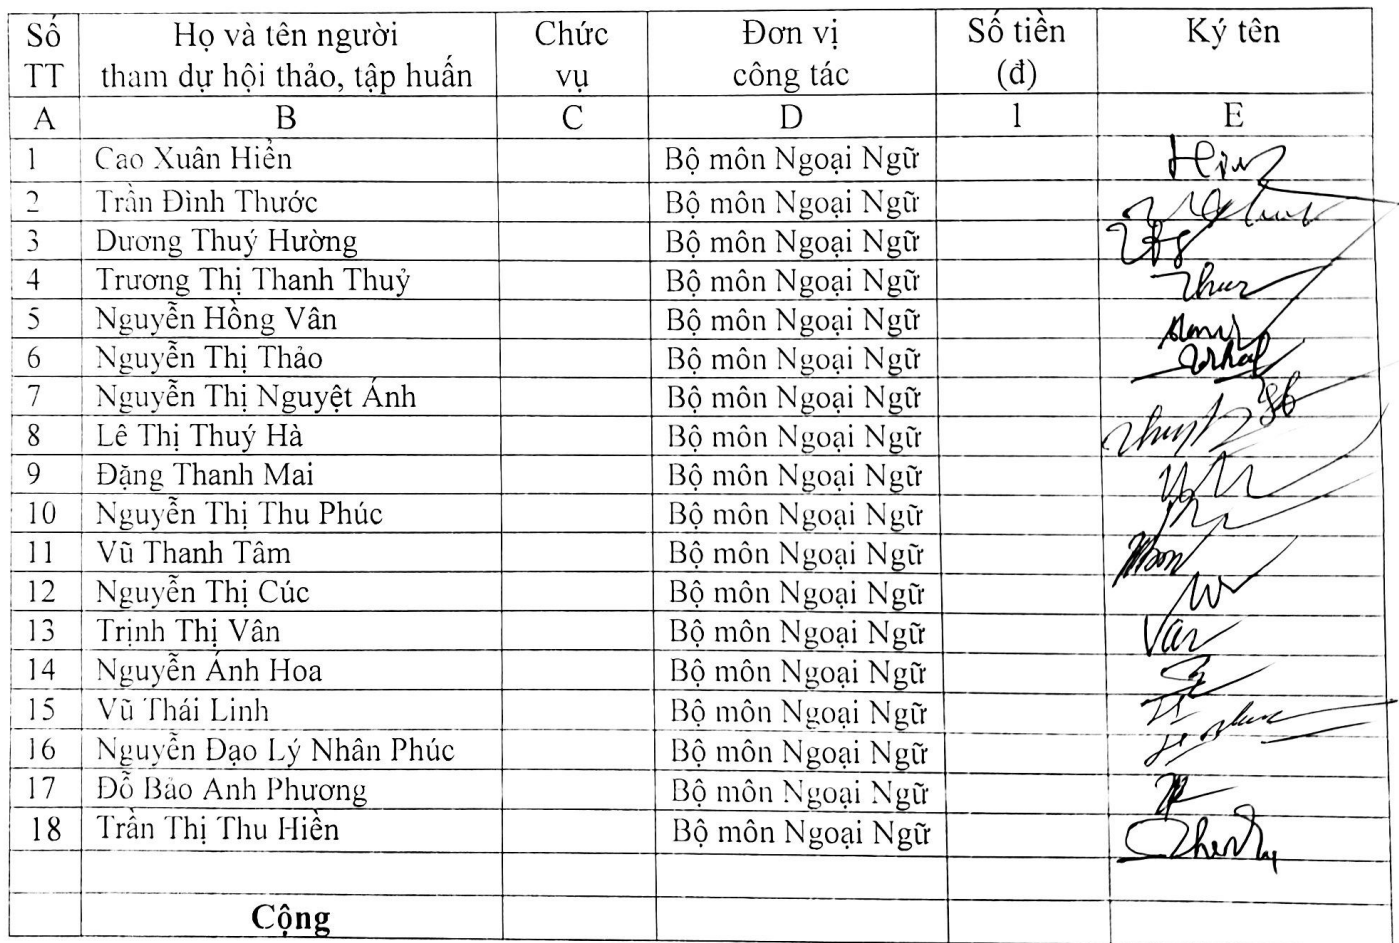 Số TT Họ và tên người tham dự hội thảo, tập huấn Chức vụ Đơn vị công tác Số tiền (đ) Ký tên
A B C D 1 E
1 Cao Xuân Hiển Bộ môn Ngoại Ngữ
2 Trần Đình Thước Bộ môn Ngoại Ngữ
3 Dương Thuý Hường Bộ môn Ngoại Ngữ
4 Trương Thị Thanh Thuỷ Bộ môn Ngoại Ngữ
5 Nguyễn Hồng Vân Bộ môn Ngoại Ngữ
6 Nguyễn Thị Thảo Bộ môn Ngoại Ngữ
7 Nguyễn Thị Nguyệt Ánh Bộ môn Ngoại Ngữ
8 Lê Thị Thuý Hà Bộ môn Ngoại Ngữ
9 Đặng Thanh Mai Bộ môn Ngoại Ngữ
10 Nguyễn Thị Thu Phúc Bộ môn Ngoại Ngữ
11 Vũ Thanh Tâm Bộ môn Ngoại Ngữ
12 Nguyễn Thị Cúc Bộ môn Ngoại Ngữ
13 Trịnh Thị Vân Bộ môn Ngoại Ngữ
14 Nguyễn Ánh Hoa Bộ môn Ngoại Ngữ
15 Vũ Thái Linh Bộ môn Ngoại Ngữ
16 Nguyễn Đạo Lý Nhân Phúc Bộ môn Ngoại Ngữ
17 Đỗ Bảo Anh Phương Bộ môn Ngoại Ngữ
18 Trần Thị Thu Hiền Bộ môn Ngoại Ngữ
Cộng